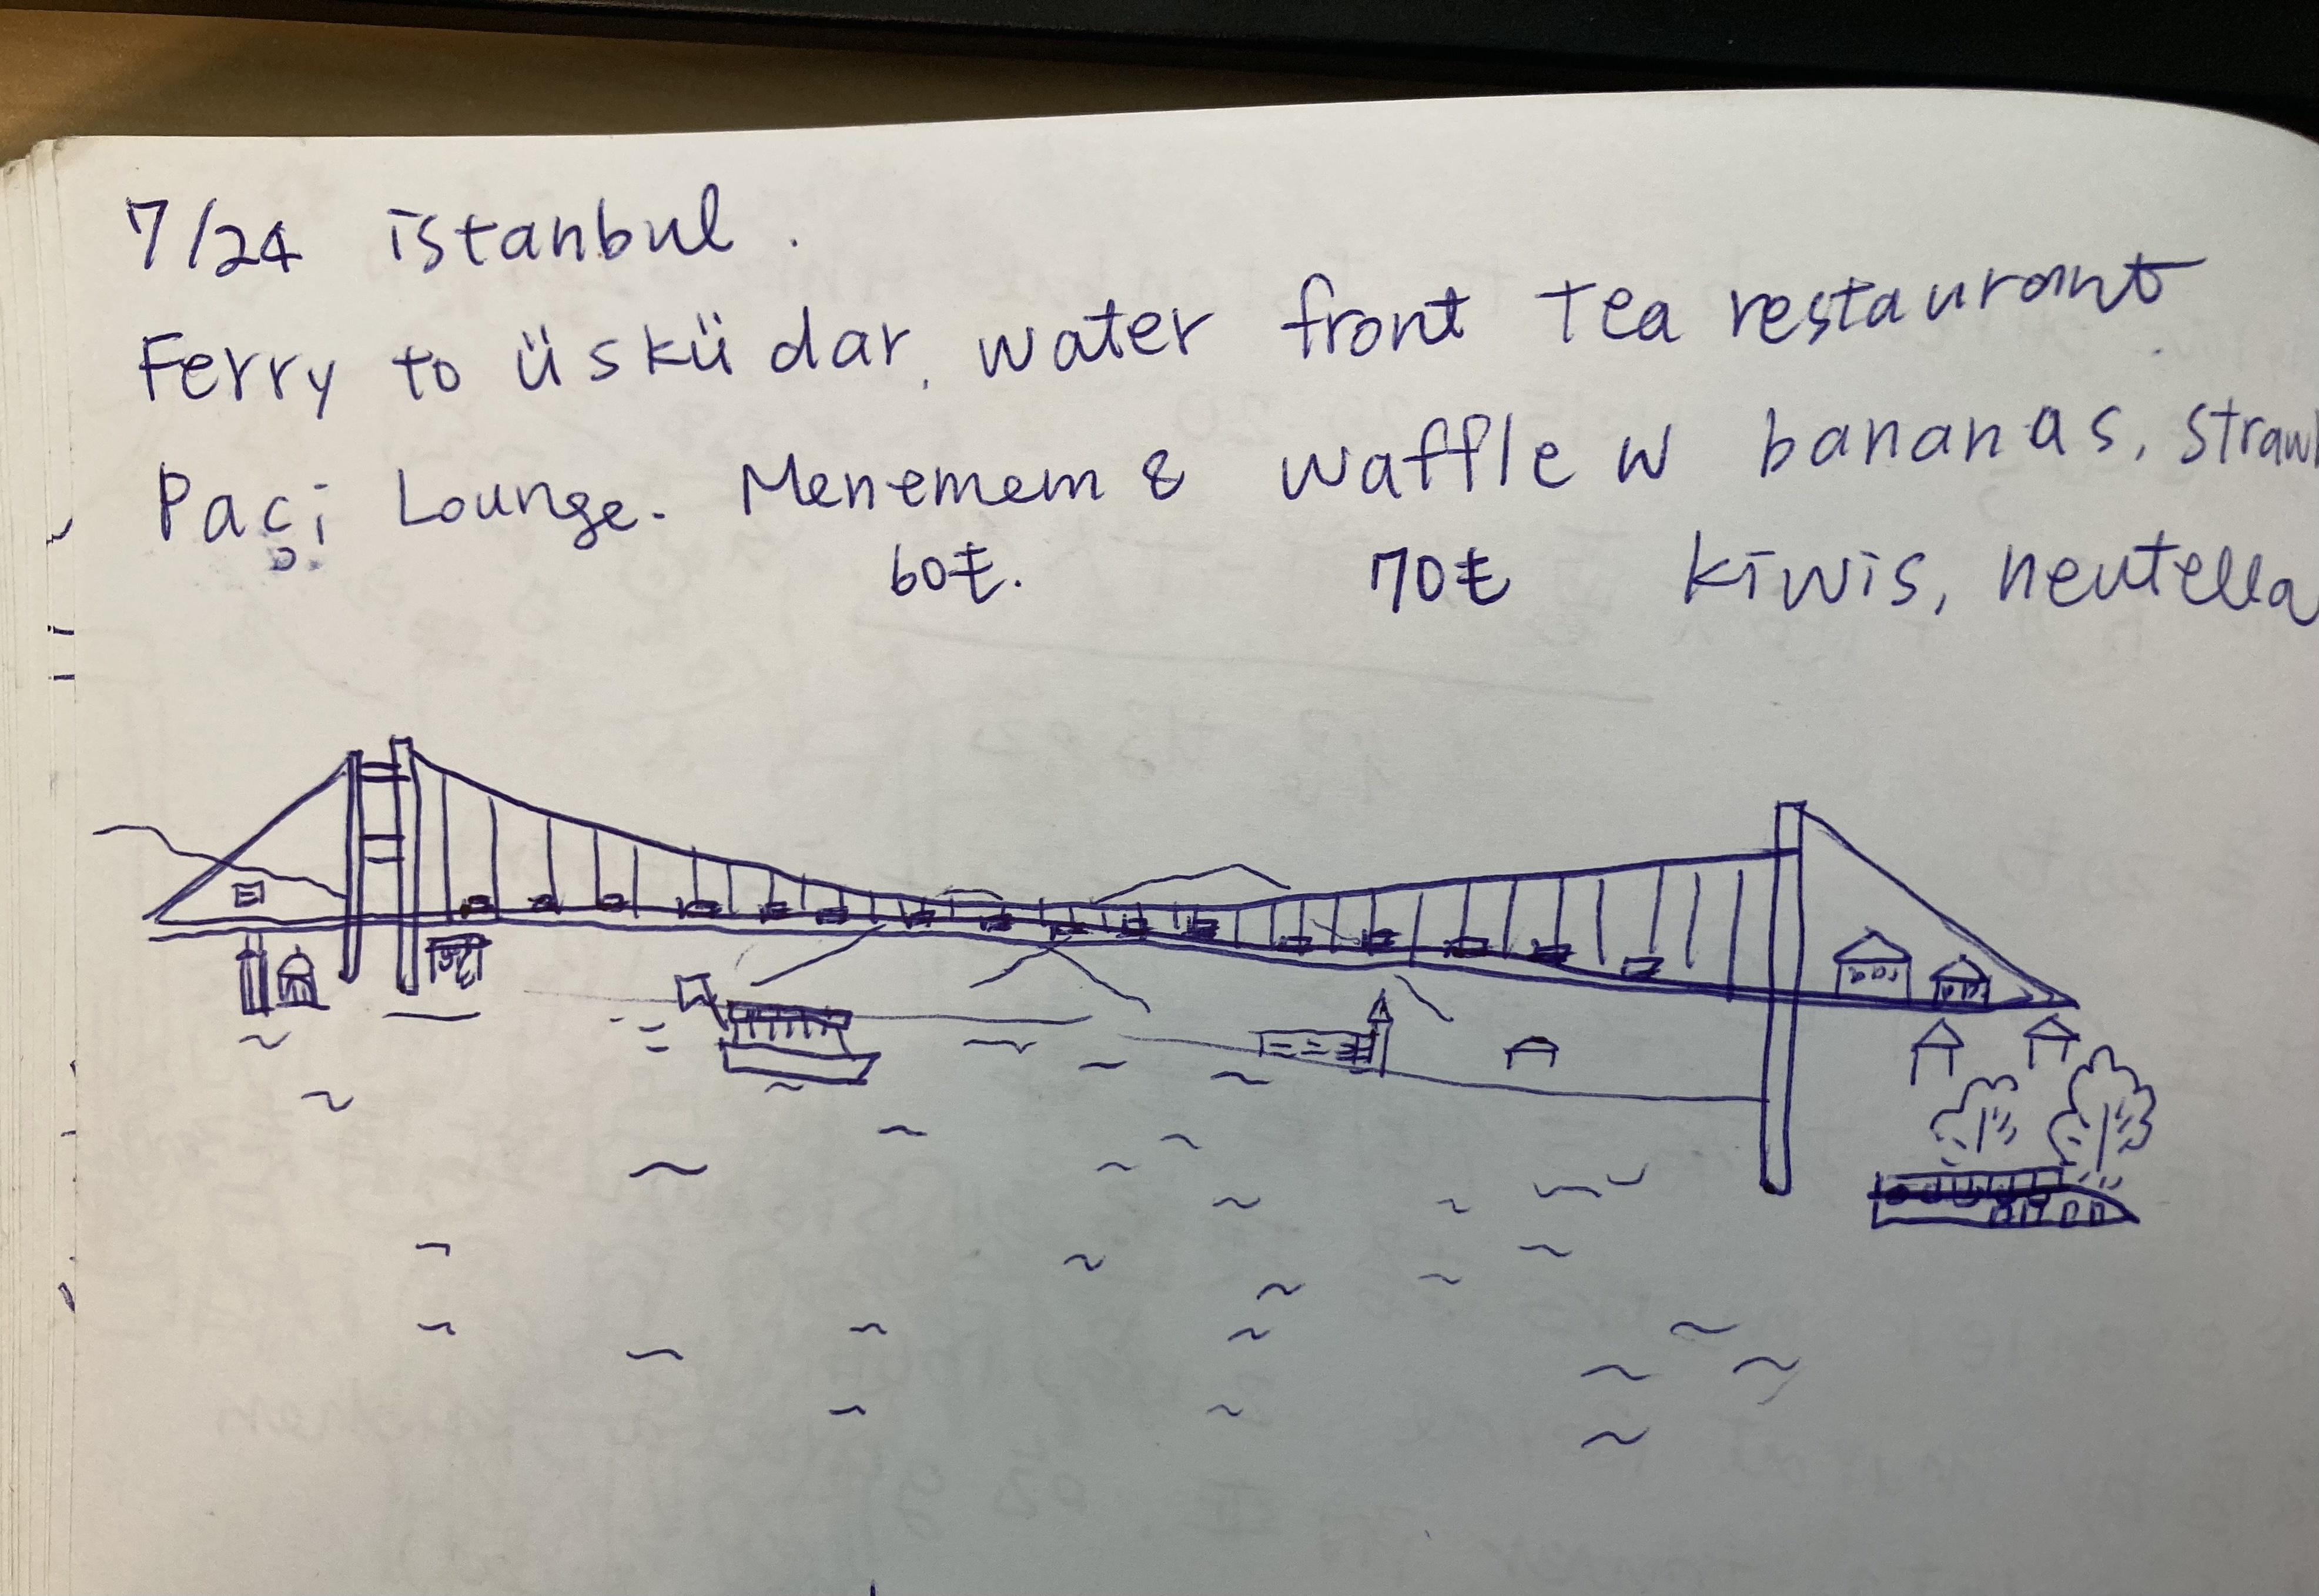 7/24 istanbul.
Ferry to üsküdar. water front Tea restaurant.
Paçi Lounge. Menemem & waffle w bananas, straw
60₺. 70₺ kiwis, neutella